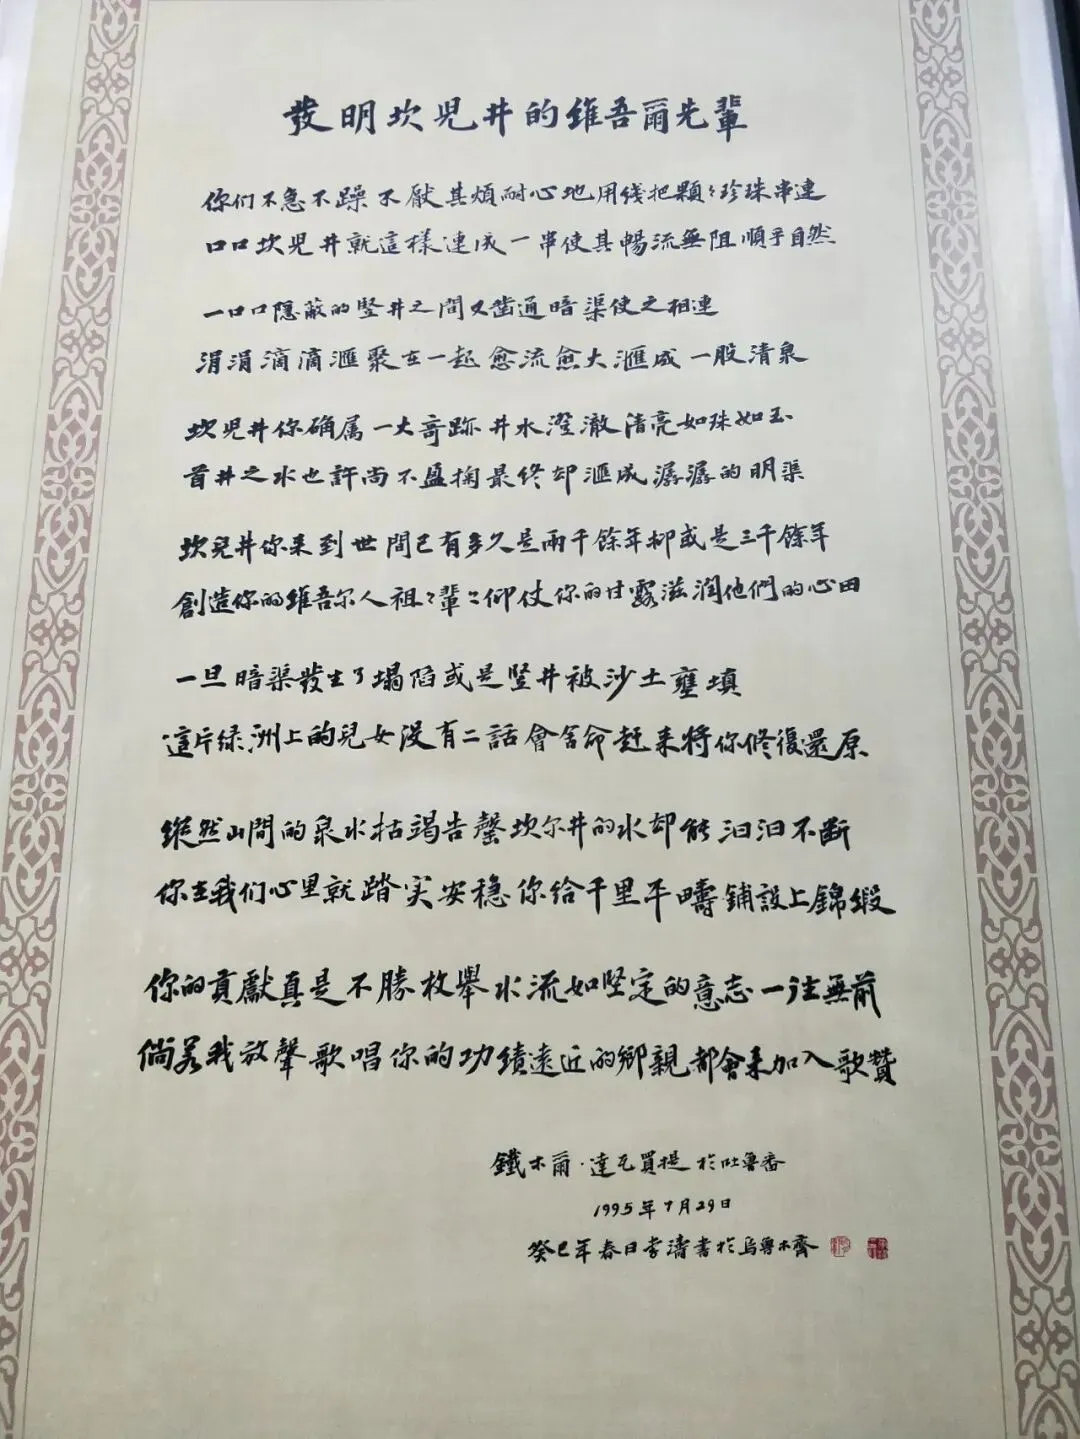 發明坎児井的維吾爾先輩
你们不急不躁不厭其煩耐心地用线把顆〻珍珠串連
口口坎児井就這樣連成一串使其暢流無阻順乎自然
一口口隐蔽的竪井之間又凿通暗渠使之相連
涓涓滴滴滙聚在一起愈流愈大滙成一股清泉
坎児井你确属一大奇跡井水澄澈清亮如珠如玉
首井之水也許尚不盈掬最终却滙成潺潺的明渠
坎兒井你来到世間已有多久是兩千餘年抑或是三千餘年
創造你的維吾尔人祖〻輩〻仰仗你的甘露滋润他們的心田
一旦暗渠發生了塌陷或是竪井被沙土壅填
這片绿洲上的兒女没有二話會舍命赶来將你修復還原
縱然山間的泉水枯竭告罄坎尔井的水却能汩汩不断
你在我们心里就踏实安穏你给千里平疇鋪設上錦緞
你的貢獻真是不勝枚舉水流如堅定的意志一往無前
倘若我放聲歌唱你的功績遠近的鄉親都會来加入歌贊
鐵木爾·達瓦買提於吐魯番
1995年7月29日
癸巳年春日李濤書於烏魯木齊